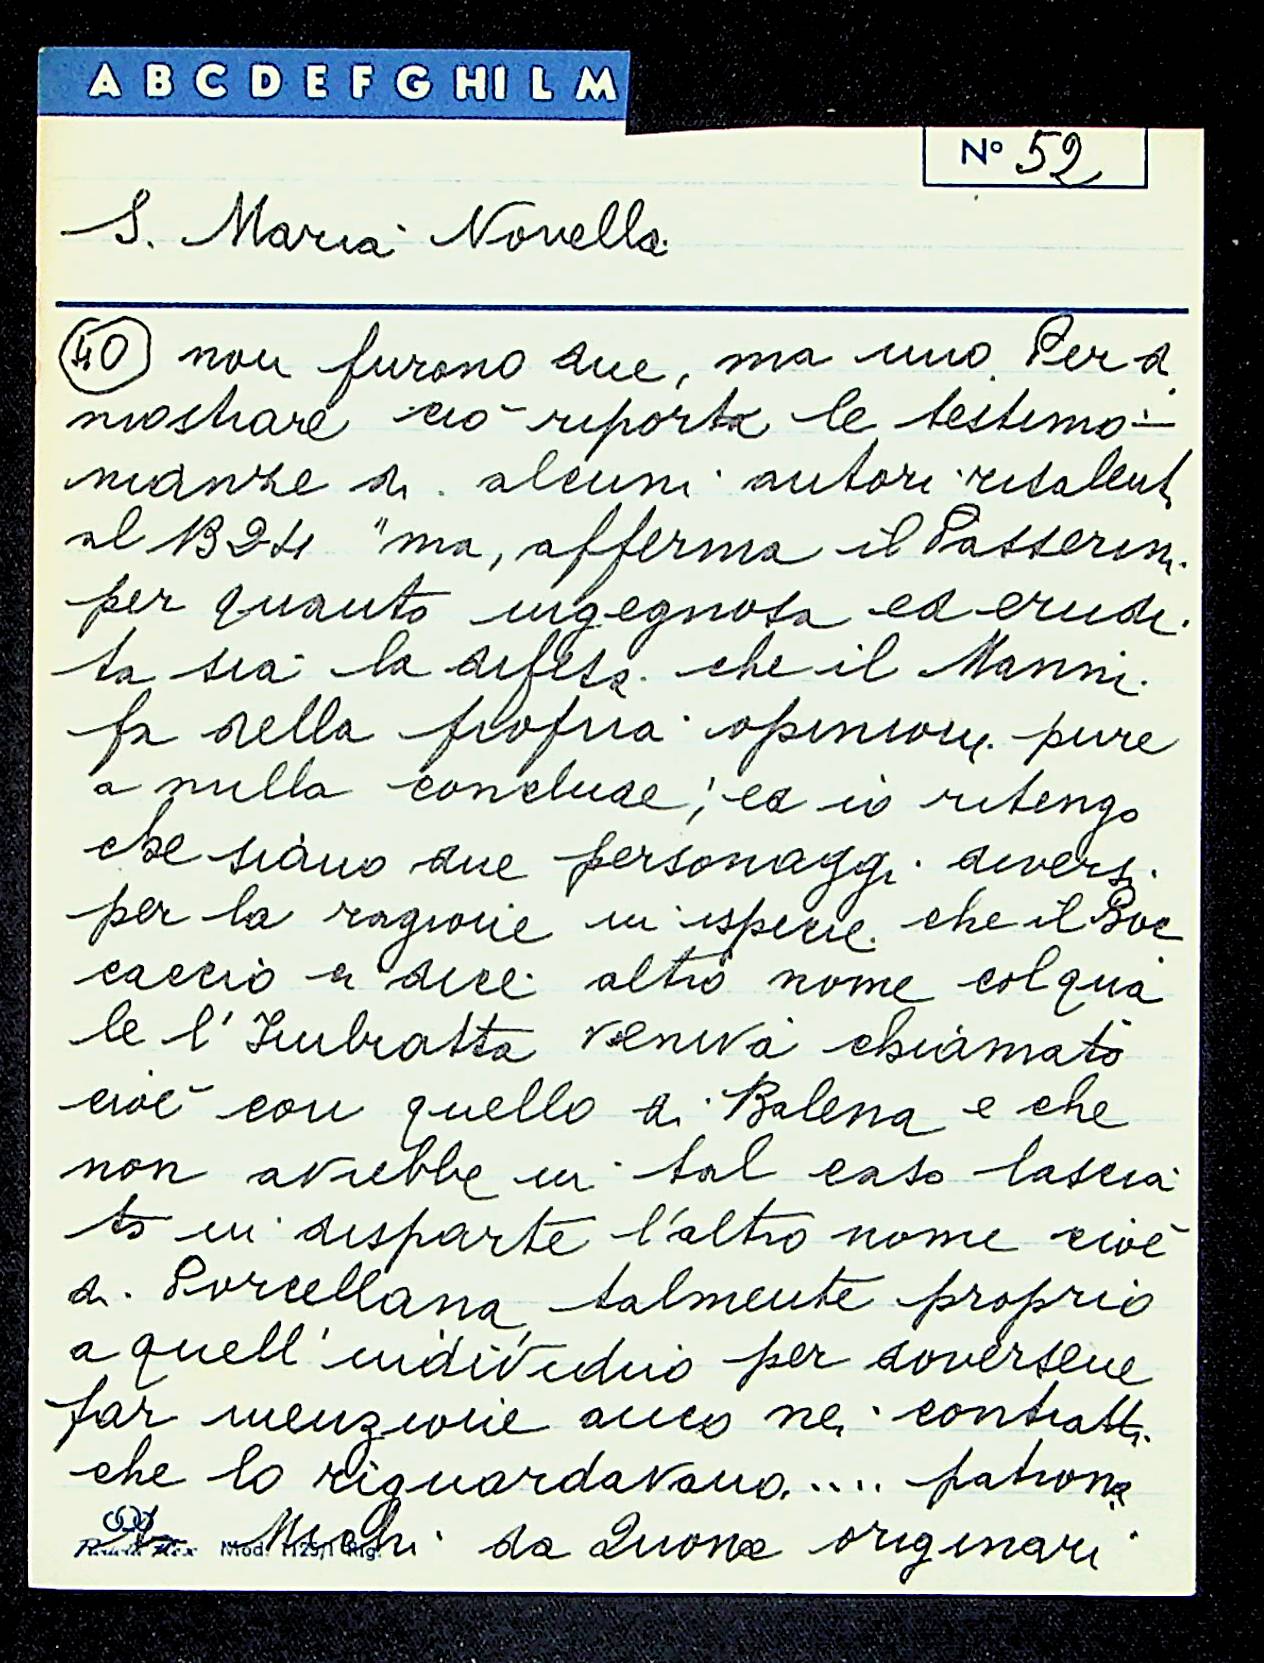 A B C D E F G HI L M
N° 52
S. Maria Novella
40 non furono due, ma uno. Per di
mostrare ciò riporta le testimo-
nianze di alcuni autori risalenti
al 1324 "ma, afferma il Passerini
per quanto ingegnosa ed erudi
ta sia la difesa che il Manni
fa della propria opinione pure
a nulla conclude; ed io ritengo
che siano due personaggi diversi
per la ragione in ispecie che il Boc
caccio ci dice altro nome col qua
le l'Imbratta veniva chiamato
cioè con quello di Balena e che
non avrebbe in tal caso lascia
to in disparte l'altro nome cioè
di Porcellana, talmente proprio
a quell'individuo per doversene
far menzione anco nei contratti
che lo riguardavano.... patrona
Michi da Quona originari
Mod. 1125/1 Rig.